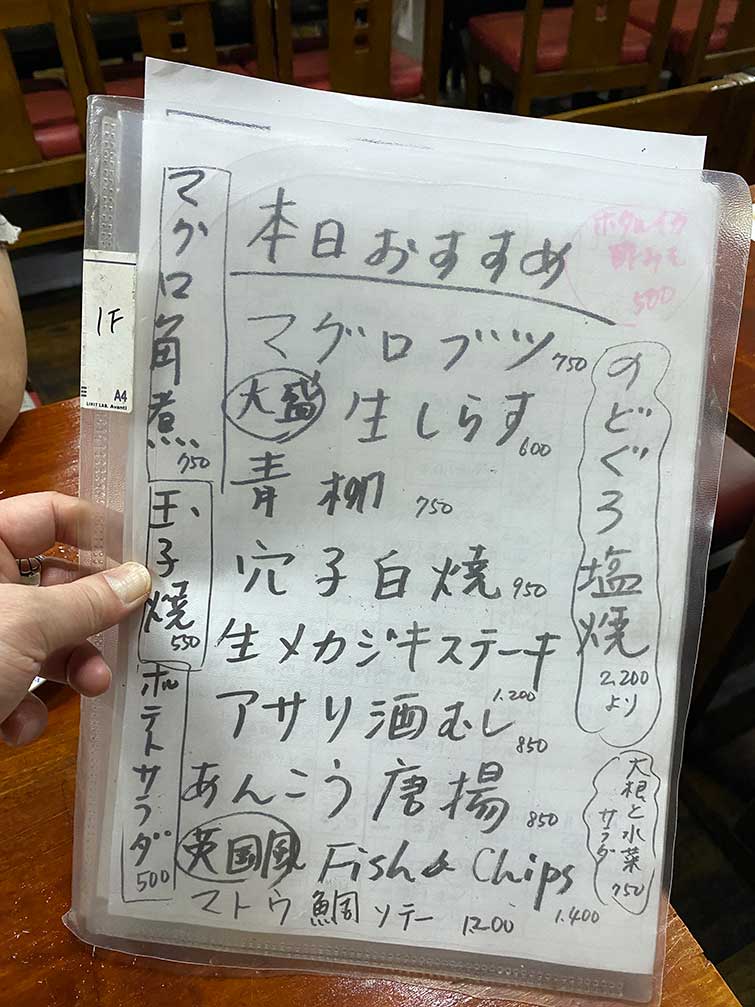 本日おすすめ
ホタルイカ
酢みそ
500
マグロブツ 750
大盛 生しらす 600
青柳 750
穴子白焼 950
生メカジキステーキ
1.200
アサリ酒むし 850
あんこう唐揚 850
英国風 Fish & Chips
1.400
マトウ鯛ソテー 1200
のどぐろ塩焼
2,200
より
大根と水菜
サラダ
750
マグロ角煮
750
玉子焼
550
ポテトサラダ
500
1F
A4